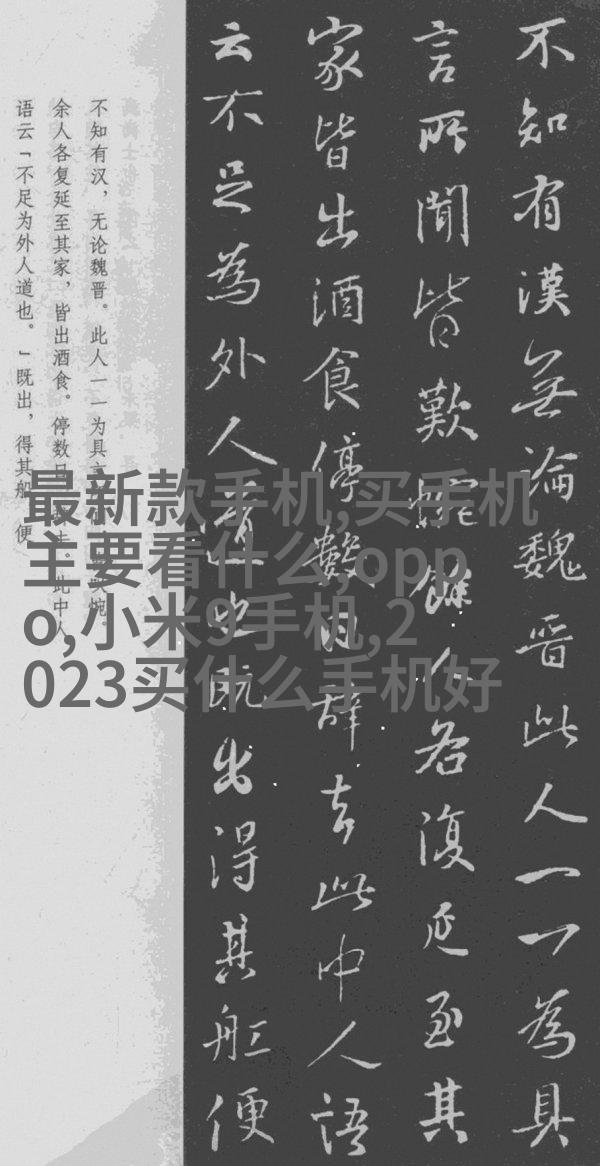 不知有漢無論魏晋此人一一為具
言所聞皆歎惋餘人各復延至其
家皆出酒食停數日辭去此中人語
云不足為外人道也既出得其舡便
不知有汉，无论魏晋。此人一一为具言惋。
余人各复延至其家，皆出酒食。停数日去。此中人
语云「不足为外人道也。」既出，得其船便
最新款手机,买手机
主要看什么,opp
o,小米9手机,2
023买什么手机好